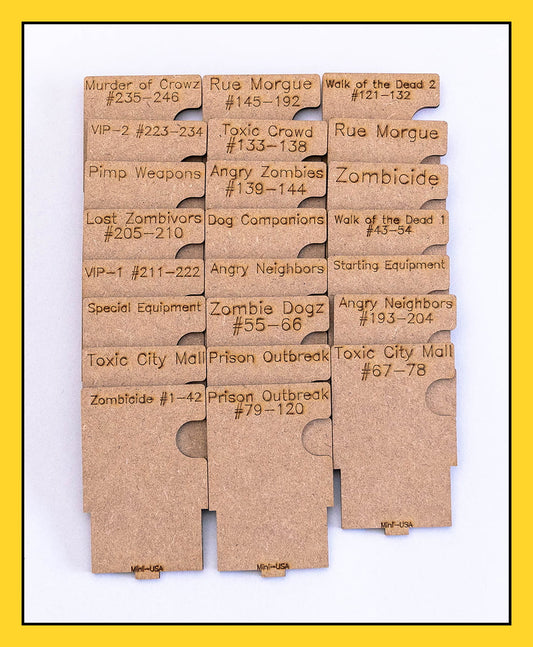 Murder of Crowz
#235-246
VIP-2 #223-234
Pimp Weapons
Lost Zombivors
#205-210
VIP-1 #211-222
Special Equipment
Toxic City Mall
Zombicide #1-42
Mini-USA
Rue Morgue
#145-192
Toxic Crowd
#133-138
Angry Zombies
#139-144
Dog Companions
Angry Neighbors
Zombie Dogz
#55-66
Prison Outbreak
Prison Outbreak
#79-120
Mini-USA
Walk of the Dead 2
#121-132
Rue Morgue
Zombicide
Walk of the Dead 1
#43-54
Starting Equipment
Angry Neighbors
#193-204
Toxic City Mall
#67-78
Mini-USA